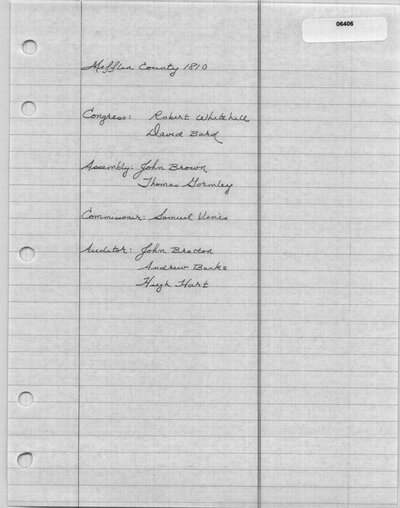 06406
Mifflin County 1810
Congress: Robert Whitehill
David Bard
Assembly: John Brown
Thomas Gormley
Commissioner: Samuel
Auditor: John Bratton
Andrew Banks
Hugh Hart